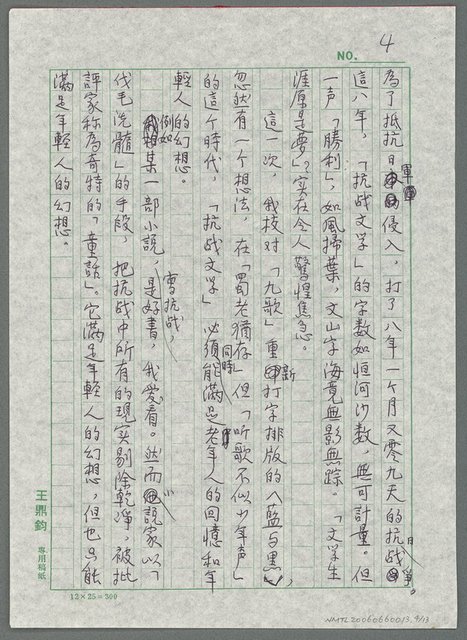 NO. 4
為了抵抗日軍侵入，打了八年一个月又零九天的抗日战爭。
這八年，「抗战文学」的字数如恒河沙数，無可計量。但
一声「勝利」，如風掃葉，文山字海竟無影無踪。「文学生
涯原是夢」？实在令人驚惶焦急。
這一次，我校对「九歌」重新打字排版的《藍与黑》，
忽然有一个想法，在「蜀老猶存」但「听歌不似少年声」
的這个時代，「抗战文学」必須能同時滿足老年人的回憶和年
輕人的幻想。
例如某一部小說，寫抗战，是好書，我愛看。然而小說家以「
伐毛洗髓」的手段，把抗战中所有的現实剔除乾凈，被批
評家称為奇特的「童話」。它滿足年輕人的幻想，但也只能
滿足年輕人的幻想。
王鼎鈞 專用稿紙
12×25=300
NMTL20060660013, 4/13